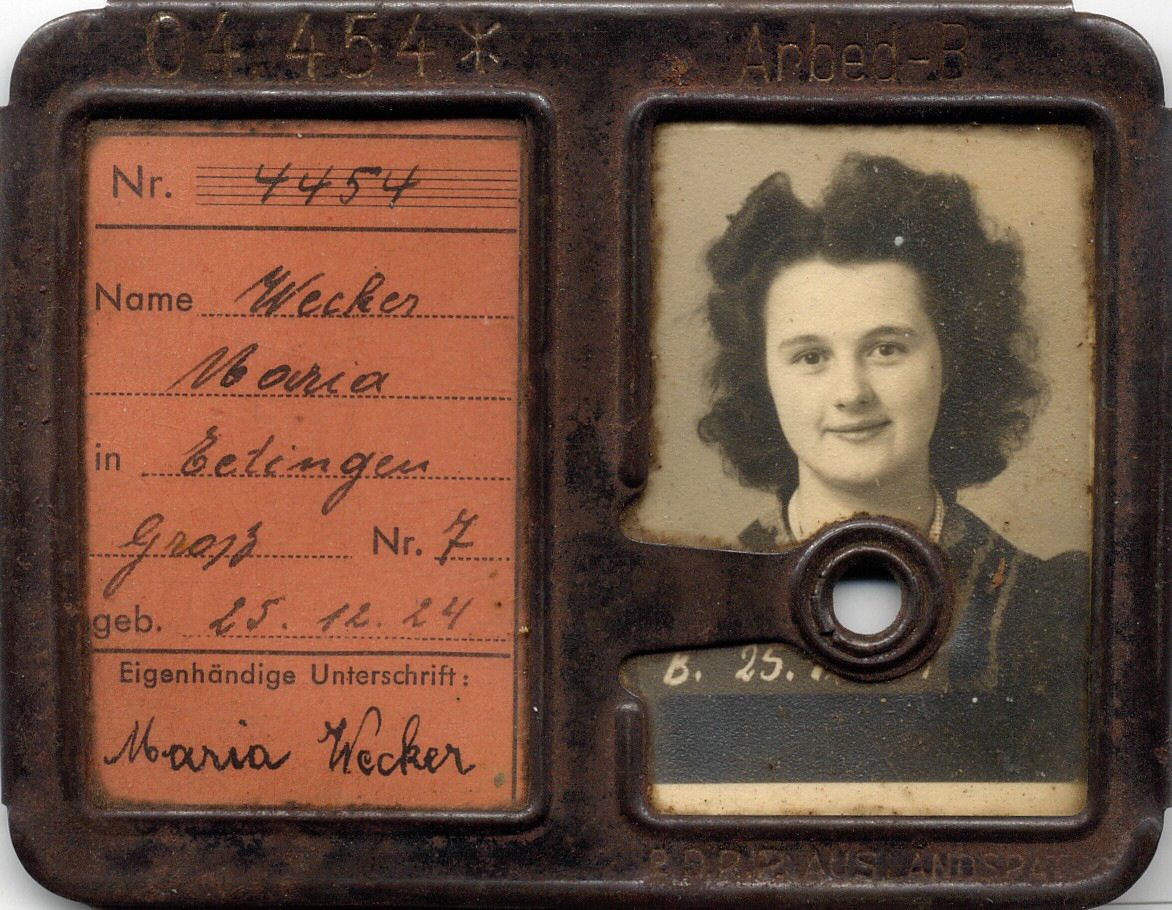 04.454*
Arbed-B
Nr. 4454
Name Wecker
Maria
in Edingen
Groß Nr. 7
geb. 25. 12. 24
Eigenhändige Unterschrift:
Maria Wecker
B. 25.
AUSLANDSPAT